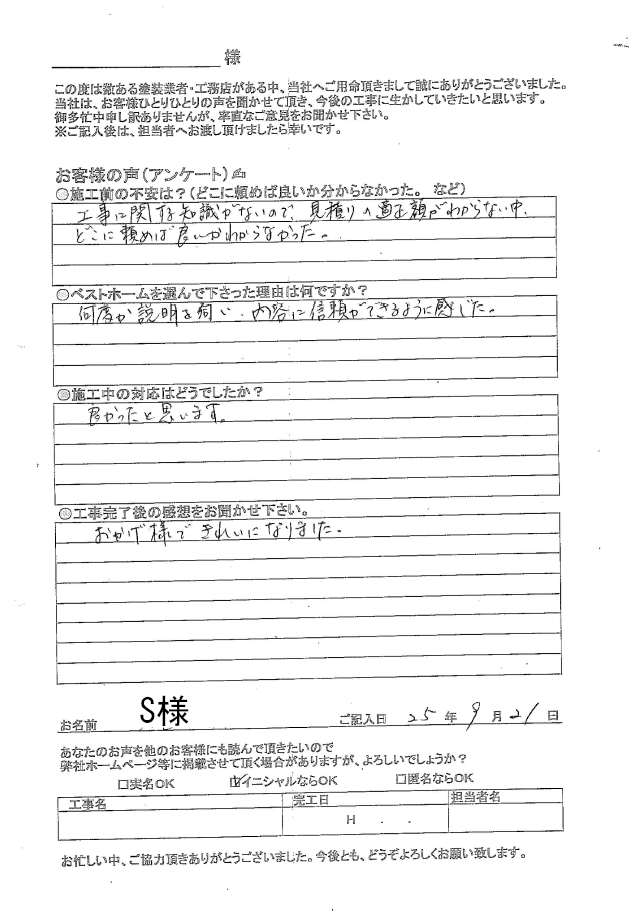 様
この度は数ある塗装業者・工務店がある中、当社へご用命頂きまして誠にありがとうございました。
当社は、お客様ひとりひとりの声を聞かせて頂き、今後の工事に生かしていきたいと思います。
御多忙中申し訳ありませんが、率直なご意見をお聞かせ下さい。
※ご記入後は、担当者へお渡し頂けましたら幸いです。
お客様の声（アンケート）✍
◎施工前の不安は？（どこに頼めば良いか分からなかった。 など）
工事に関する知識がないので、見積りの適正額がわからない中、
どこに頼めば良いかわからなかった。
◎ベストホームを選んで下さった理由は何ですか？
何度か説明を伺い、内容に信頼ができるように感じた。
◎施工中の対応はどうでしたか？
良かったと思います。
◎工事完了後の感想をお聞かせ下さい。
おかげ様できれいになりました。
お名前 S様 ご記入日 25 年 9 月 21 日
あなたのお声を他のお客様にも読んで頂きたいので
弊社ホームページ等に掲載させて頂く場合がありますが、よろしいでしょうか？
□実名OK ☑イニシャルならOK □匿名ならOK
工事名 完工日 担当者名
H . .
お忙しい中、ご協力頂きありがとうございました。今後とも、どうぞよろしくお願い致します。